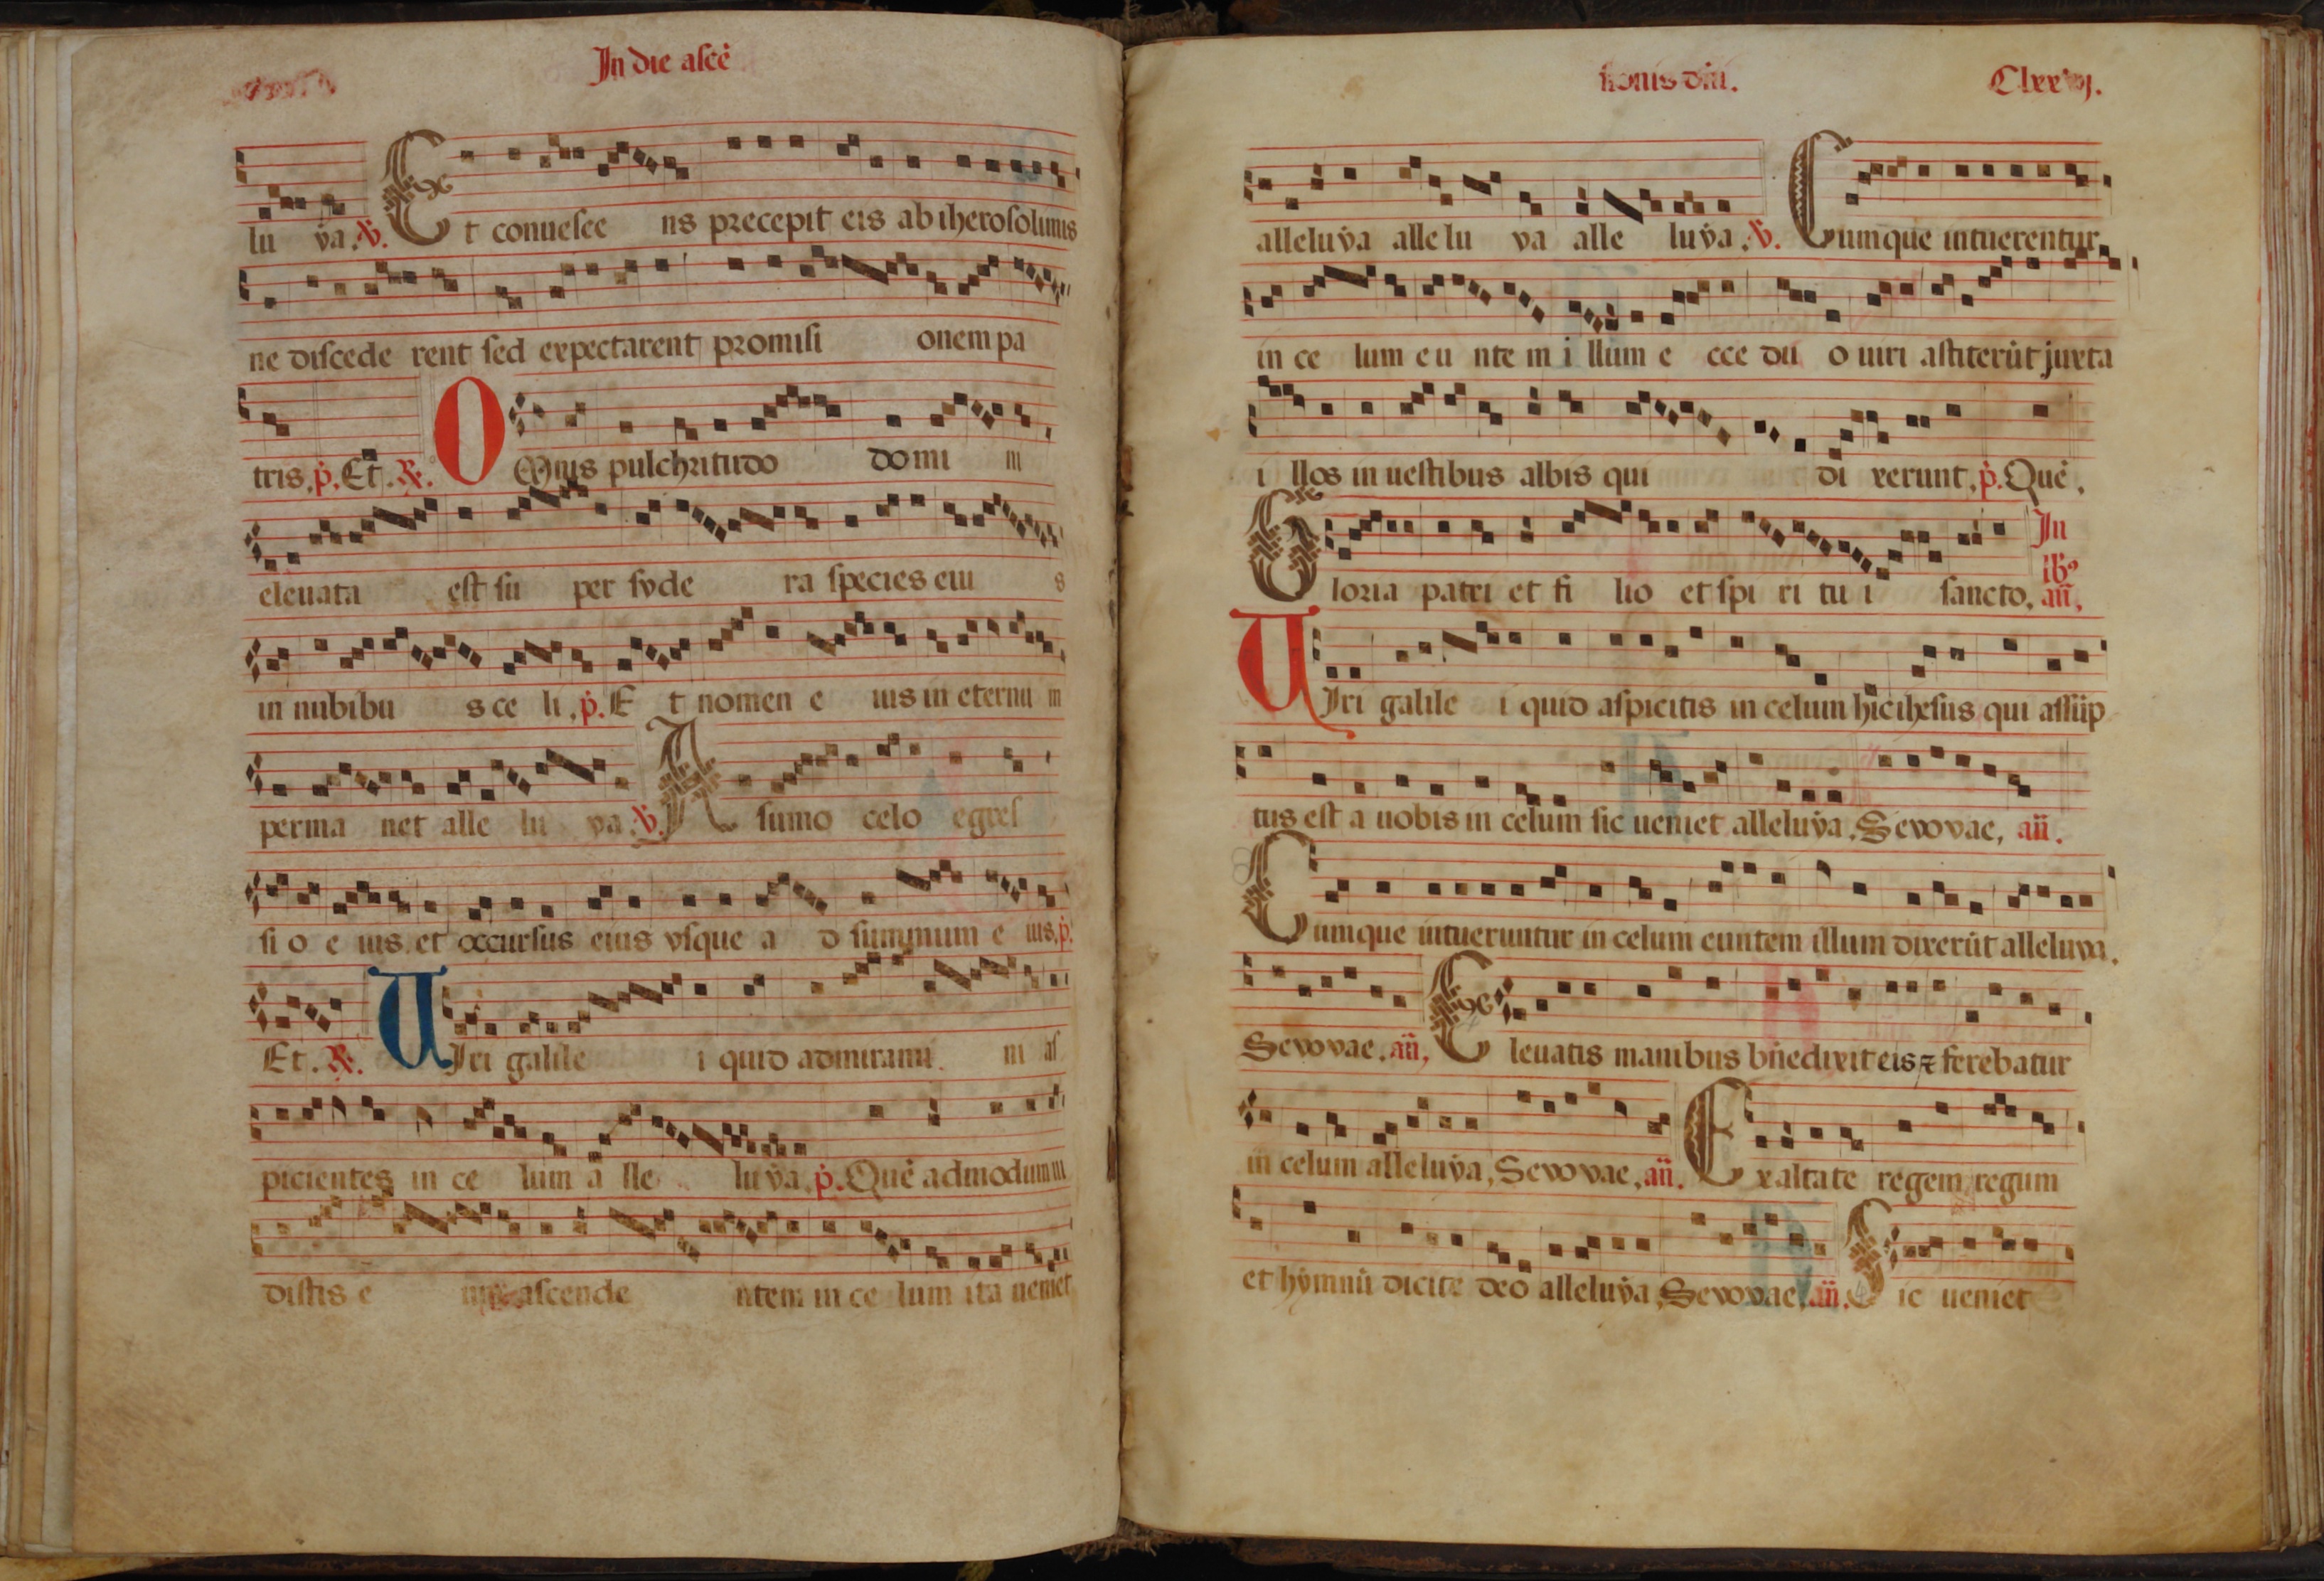 In die ascē
lu ẏa. ℣. Et conuesce ns precepit eis ab iherosolimis
ne discede rent sed expectarent promisi onem pa
tris. p̄. Et. ℟. OMnis pulchritudo domi ni
eleuata est su per syde ra species eiu s
in nubibu s ce li. p̄. E t nomen e ius in eternu m
perma net alle lu ya. ℣. A sumo celo egres
si o e ius et occursus eius vsque a d summum e ius. p̄.
Et. ℟. UIri galile i quid admirami ni as
picientes in ce lum a lle luẏa. p̄. Quē admodum
distis e um ascende ntem in ce lum ita ueniet
sionis dñi. Clxxvij.
alleluẏa alle lu ya alle luẏa. ℣. Cumque intuerentur
in ce lum e u nte m i llum e cce du o uiri astiterūt juxta
i llos in uestibus albis qui di xerunt. p̄. Quē.
Gloria patri et fi lio et spi ri tu i sancto. In ib9 añ.
UIri galile i quid aspicitis in celum hic ihesus qui assūp
tus est a uobis in celum sic ueniet alleluẏa. Seuouae. añ.
Cumque intueruntur in celum euntem illum dixerūt alleluya.
Seuouae. añ. Eleuatis manibus bñedixit eis ⁊ ferebatur
in celum alleluẏa. Seuouae. añ. Exaltate regem regum
et hẏmnū dicite deo alleluẏa. Seuouae. añ. Sic ueniet